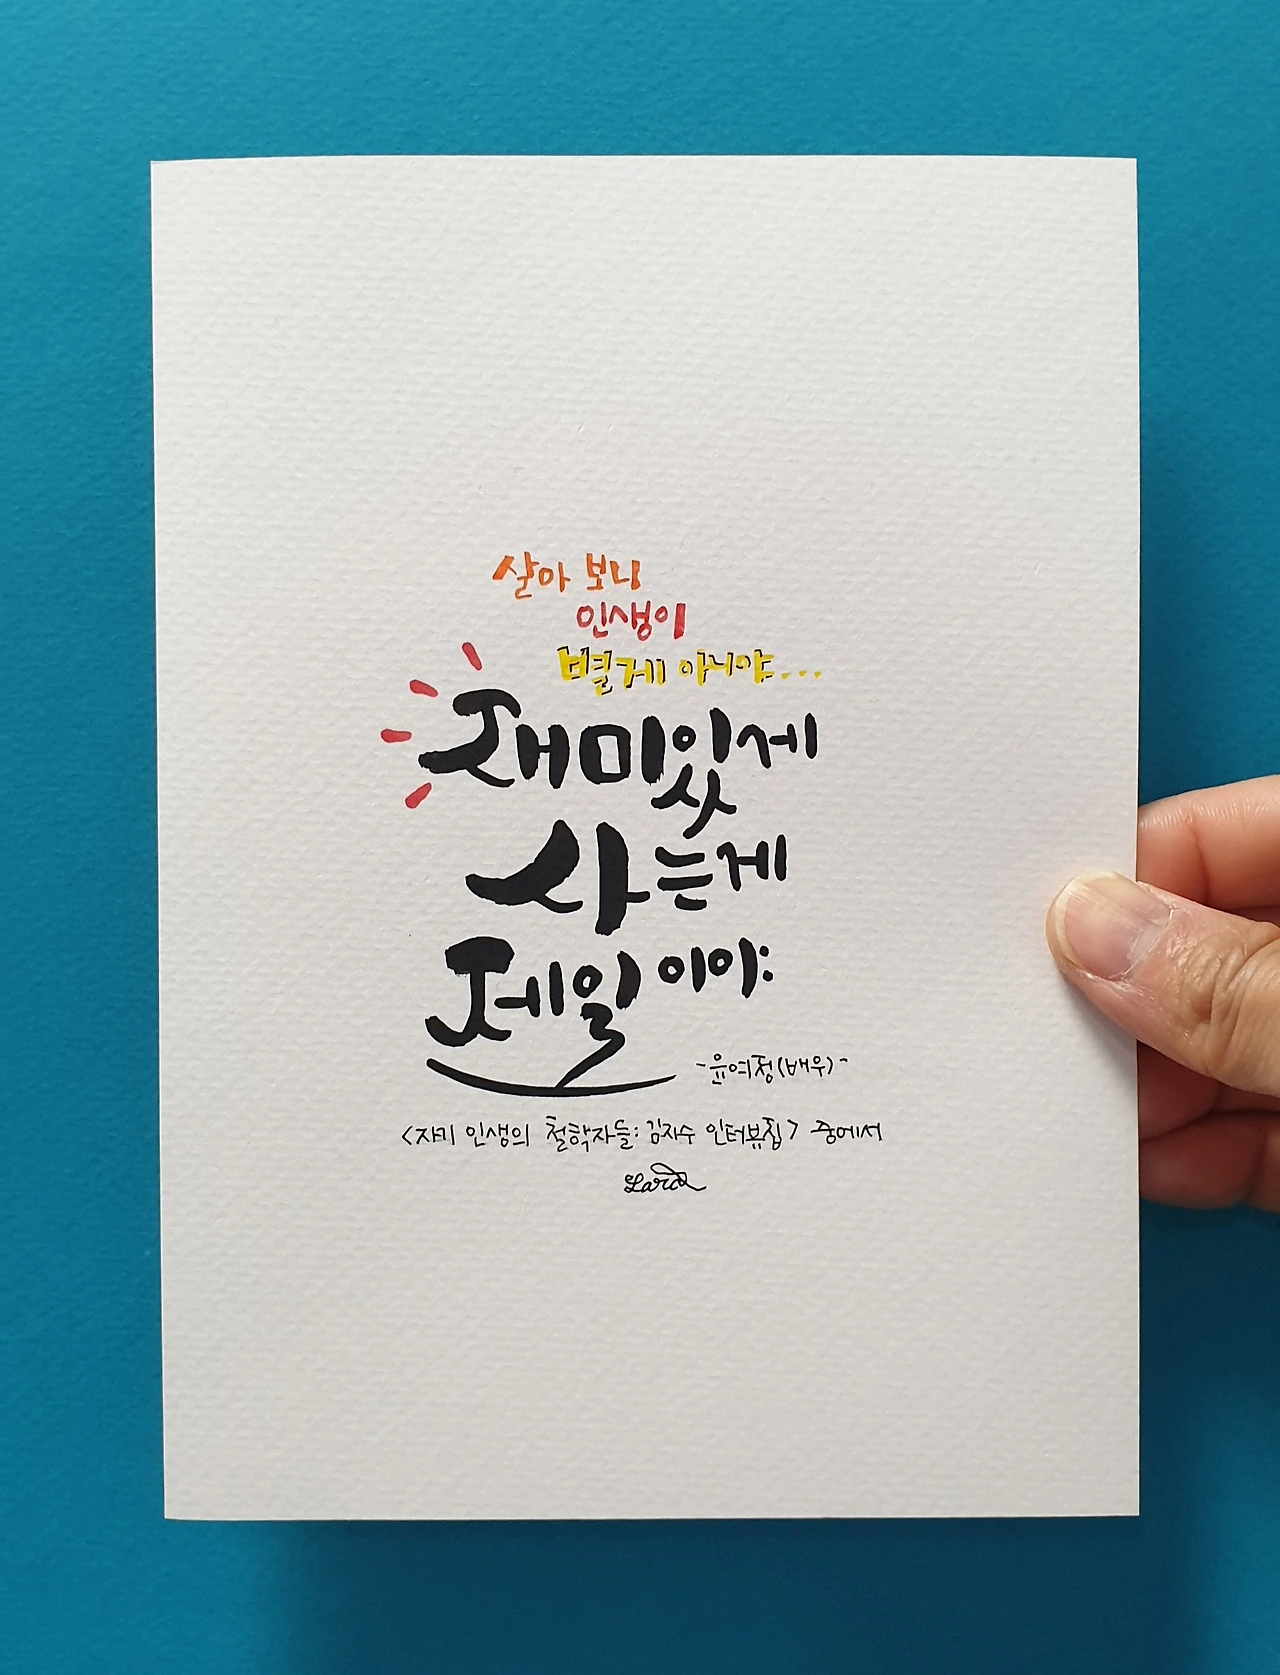 살아 보니
인생이
별게 아니야...
재미있게
사는게
제일이야:
-윤여정(배우)-
<자기 인생의 철학자들: 김지수 인터뷰집> 중에서
Lara